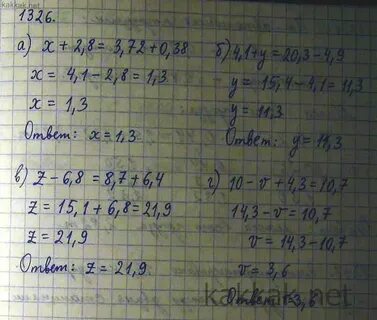 kakkak.net
1326.
а) x + 2,8 = 3,72 + 0,38
x = 4,1 - 2,8 = 1,3
x = 1,3
Ответ: x = 1,3
б) 4,1 + y = 20,3 - 4,9
y = 15,4 - 4,1 = 11,3
y = 11,3
Ответ: y = 11,3
в) z - 6,8 = 8,7 + 6,4
z = 15,1 + 6,8 = 21,9
z = 21,9
Ответ: z = 21,9.
г) 10 - v + 4,3 = 10,7
14,3 - v = 10,7
v = 14,3 - 10,7
v = 3,6
Ответ: 3,6
kakkak.net